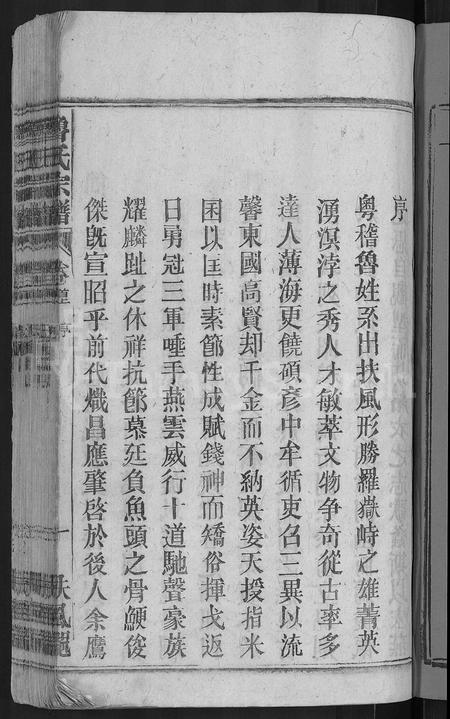 序
粵稽魯姓系出扶風形勝羅嶽峙之雄菁英
湧溟渟之秀人才敏萃文物争奇從古率多
達人薄海更饒碩彥中牟循吏召三異以流
馨東國高賢却千金而不納英姿天授指米
囷以匡時素節性成賦錢神而矯俗揮戈返
日勇冠三軍唾手燕雲威行十道馳聲豪族
耀麟趾之休祥抗節慕廷負魚頭之骨鯁俊
傑旣宣昭乎前代熾昌應肇啓於後人余鷹
魯氏宗譜
序
一
扶風